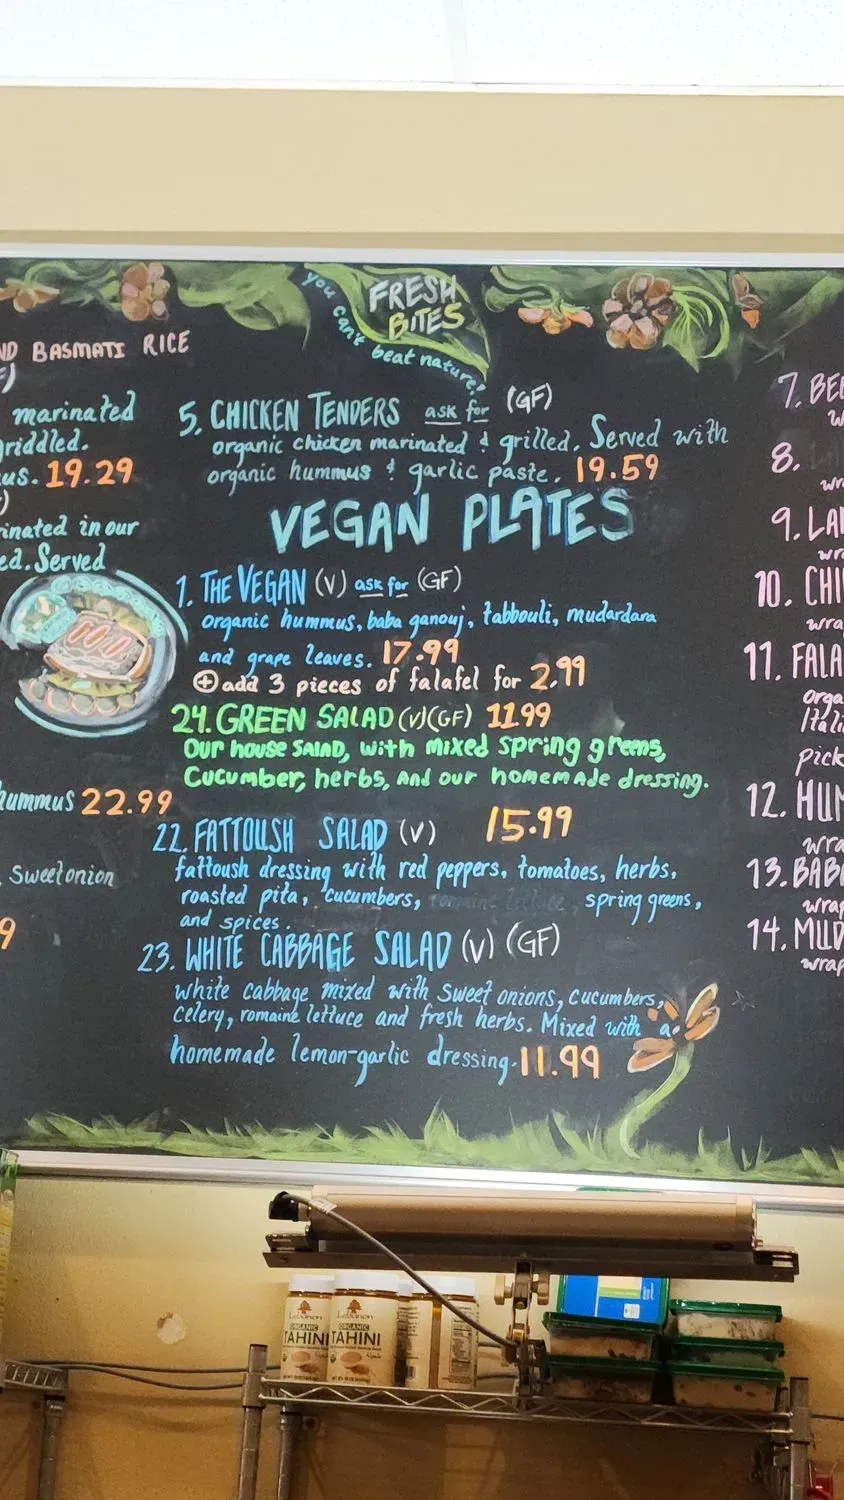 FRESH
BITES
you can't beat nature!
BASMATI RICE
marinated
19.29
in our
Served
hummus 22.99
sweet onion
5. CHICKEN TENDERS ask for (GF)
organic chicken marinated & grilled. Served with
organic hummus & garlic paste. 19.59
VEGAN PLATES
1. THE VEGAN (V) ask for (GF)
organic hummus, baba ganouj, tabbouli, mudardara
and grape leaves. 17.99
⊕ add 3 pieces of falafel for 2.99
24. GREEN SALAD (V)(GF) 11.99
Our house SALAD, with mixed spring greens,
Cucumber, herbs, and our homemade dressing.
22. FATTOUSH SALAD (V) 15.99
fattoush dressing with red peppers, tomatoes, herbs,
roasted pita, cucumbers, romaine lettuce, spring greens,
and spices.
23. WHITE CABBAGE SALAD (V) (GF)
white cabbage mixed with sweet onions, cucumbers,
celery, romaine lettuce and fresh herbs. Mixed with a
homemade lemon-garlic dressing. 11.99
7.
8.
9.
10.
11.
12.
13.
14.
Lebanon
ORGANIC
TAHINI
Lebanon
ORGANIC
TAHINI